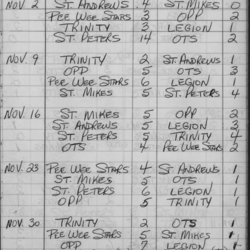 NOV. 2 ST. ANDREWS 4 ST. MIKES 0
PEE WEE STARS 3 OPP 2
TRINITY 3 LEGION 1
ST. PETERS 14 OTS 2
NOV. 9 TRINITY 2 ST. ANDREWS 1
OPP 5 OTS 3
PEE WEE STARS 6 LEGION 1
ST. MIKES 5 ST. PETERS 4
NOV. 16 ST. MIKES 5 OPP 2
ST. ANDREWS 5 LEGION 3
ST. PETERS 5 TRINITY 4
OTS 4 PEE WEE STARS 2
NOV. 23 PEE WEE STARS 4 ST. ANDREWS 1
ST. MIKES 5 OTS 1
ST. PETERS 6 LEGION 1
OPP 5 TRINITY 1
NOV. 30 TRINITY 2 OTS 1
PEE WEE STARS 5 ST. MIKES 1
OPP 7 LEGION